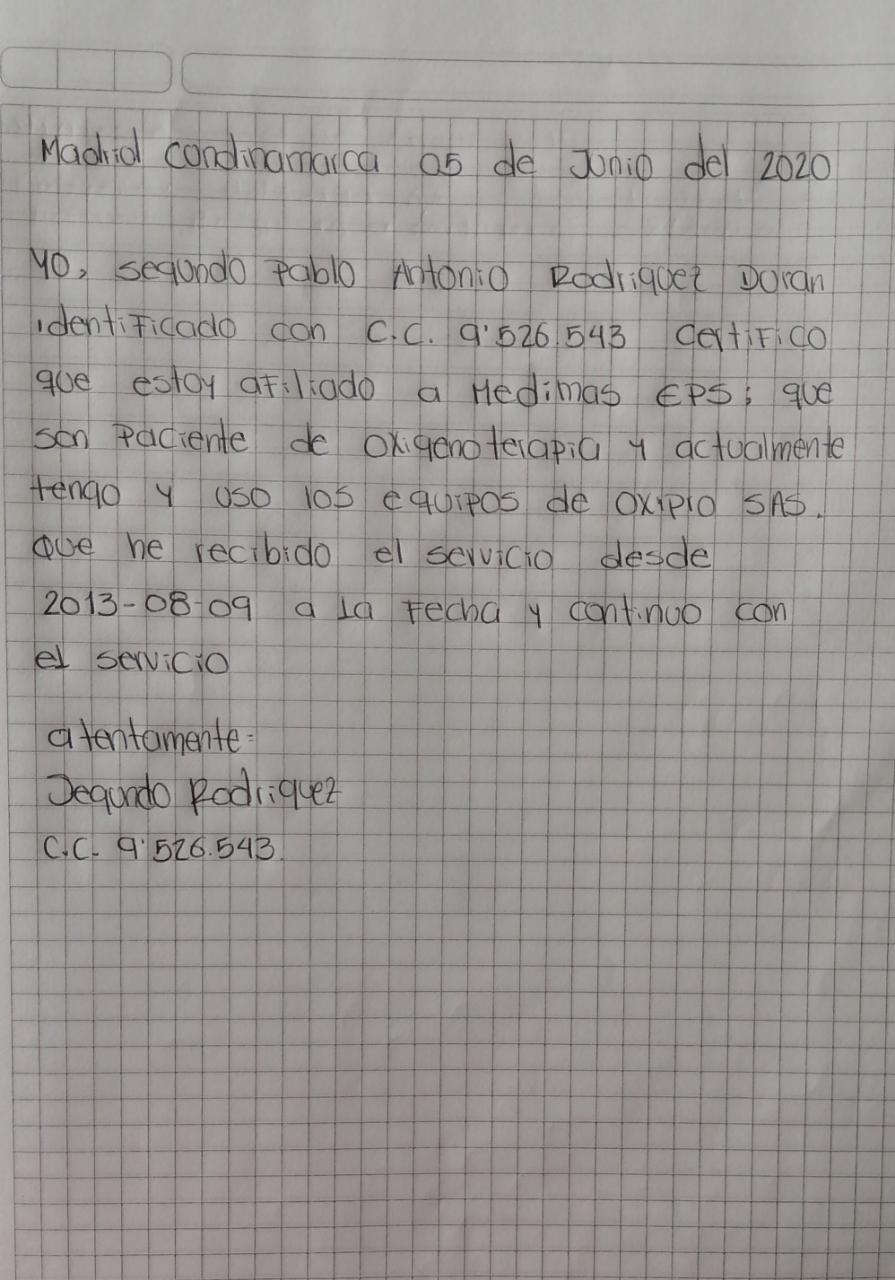 Madrid condinamarca 05 de Junio del 2020
Yo, segundo Pablo Antonio Rodriguez Duran
identificado con C.C. 9'526.543 certifico
que estoy afiliado a Medimas EPS; que
son paciente de oxigenoterapia y actualmente
tengo y uso los equipos de oxipro SAS.
Que he recibido el servicio desde
2013-08-09 a la fecha y continuo con
el servicio
atentamente:
Segundo Rodriguez
C.C. 9'526.543.